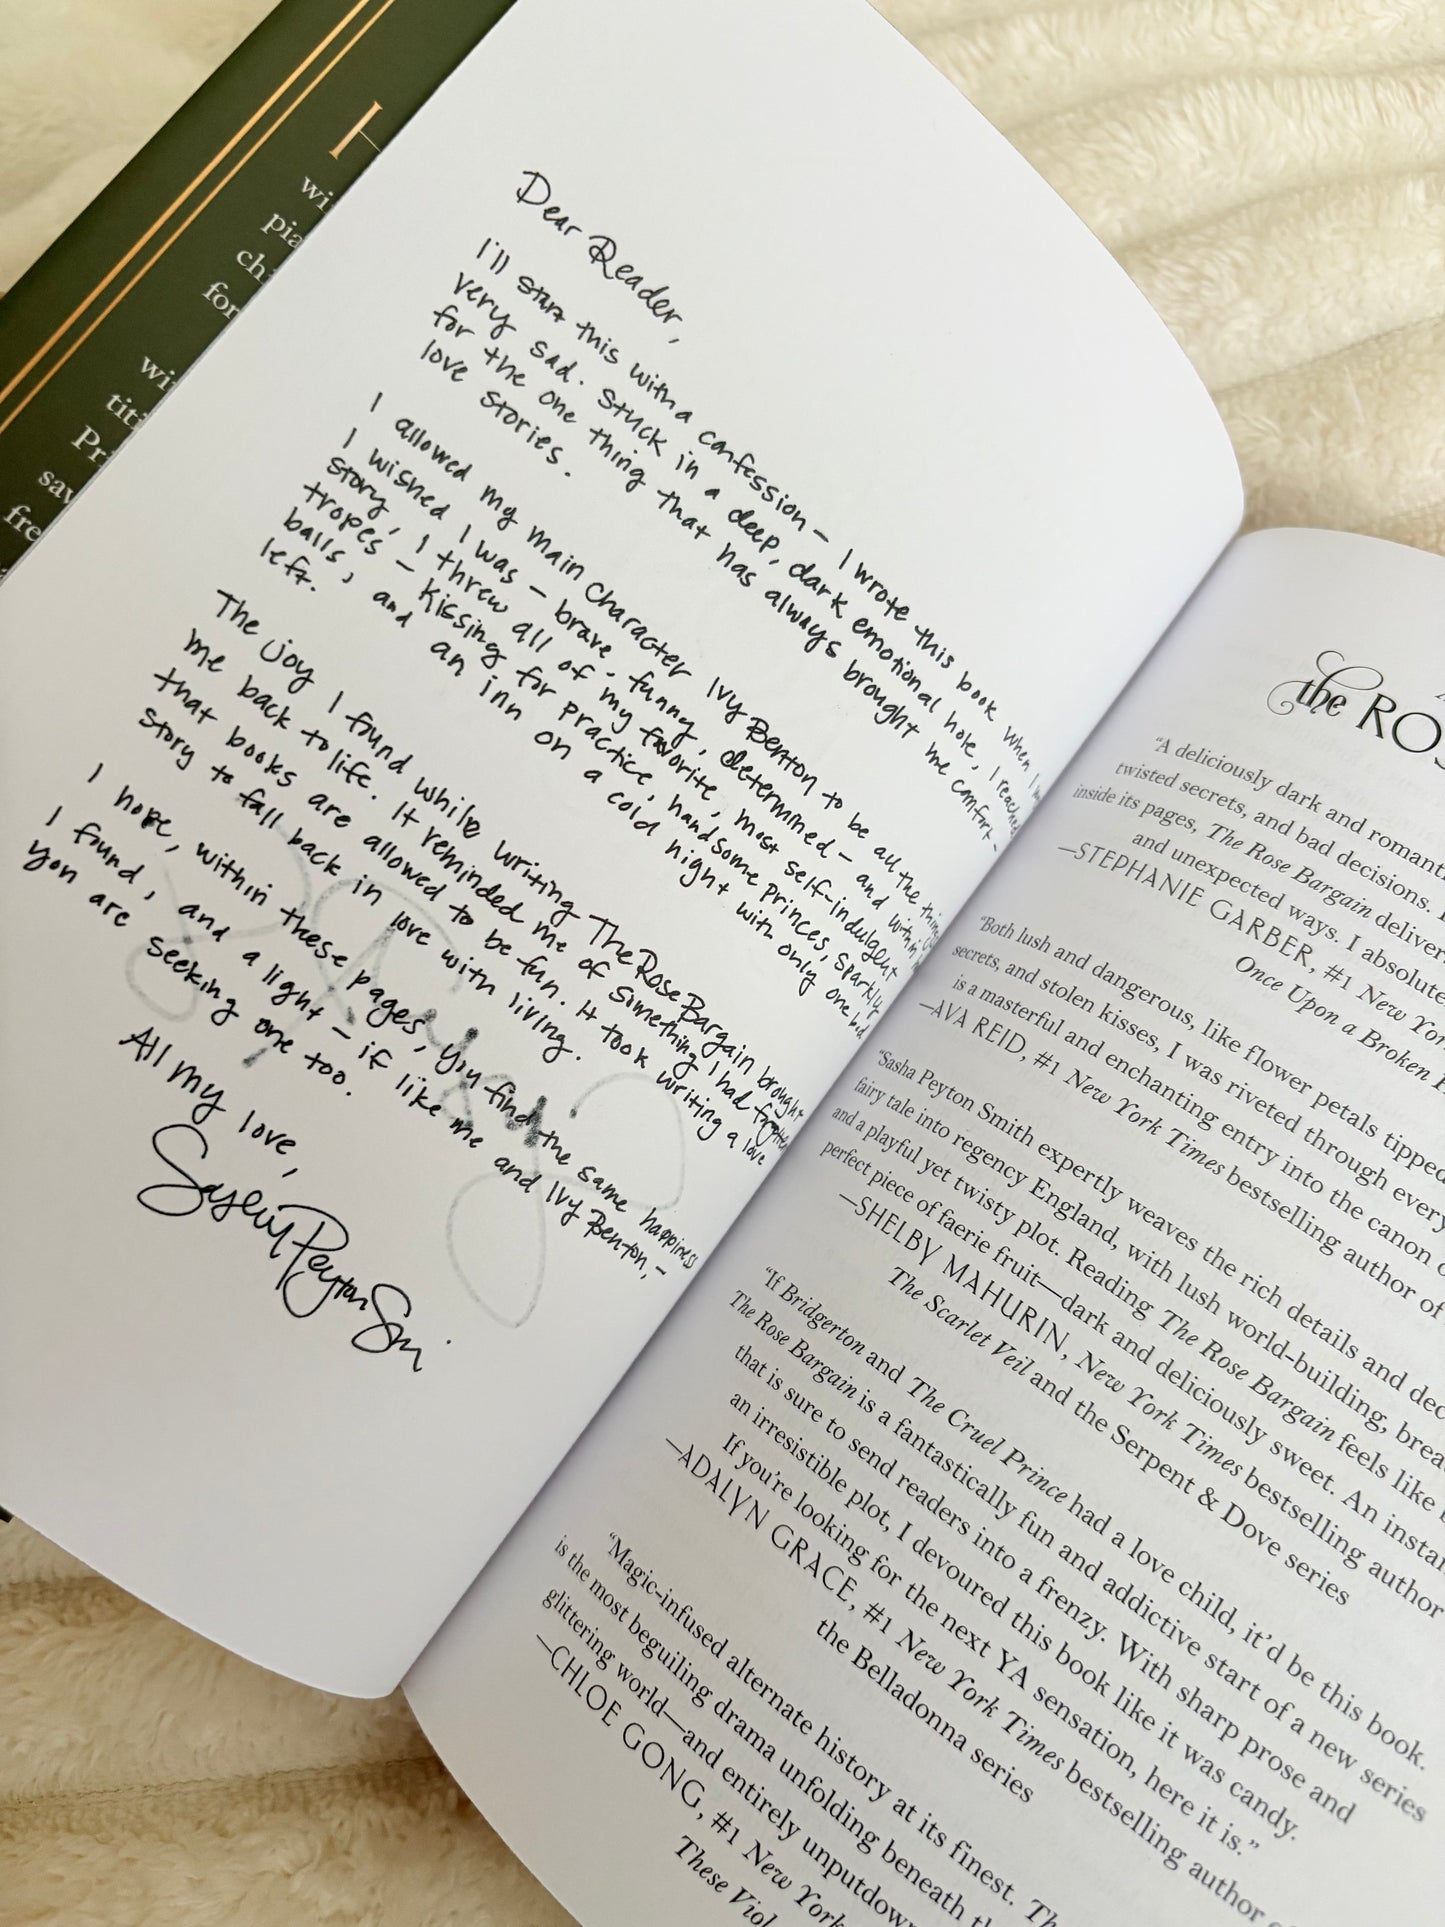 H
wi
pia
chi
for
wi
titl
Pri
sav
fre
Dear Reader,
I'll start this with a confession – I wrote this book when I was
very sad. Stuck in a deep, dark emotional hole, I reached
for the one thing that has always brought me comfort –
love stories.
I allowed my main character Ivy Benton to be all the things
I wished I was – brave, funny, determined – and within
story, I threw all of my favorite, most self-indulgent
tropes – kissing for practice, handsome princes, sparkly
balls, and an inn on a cold night with only one bed
left.
The joy I found while writing The Rose Bargain brought
me back to life. It reminded me of something I had forgotten
that books are allowed to be fun. It took writing a love
story to fall back in love with living.
I hope, within these pages, you find the same happiness
I found, and a light – if like me and Ivy Benton, –
you are seeking one too.
All my love,
Sasha Peyton Smi
the ROS
"A deliciously dark and romanti
twisted secrets, and bad decisions.
inside its pages, The Rose Bargain deliver
and unexpected ways. I absolute
—STEPHANIE GARBER, #1 New Yor
Once Upon a Broken
"Both lush and dangerous, like flower petals tipped
secrets, and stolen kisses, I was riveted through every
is a masterful and enchanting entry into the canon
—AVA REID, #1 New York Times bestselling author of
"Sasha Peyton Smith expertly weaves the rich details and dec
fairy tale into regency England, with lush world-building, brea
and a playful yet twisty plot. Reading The Rose Bargain feels like
perfect piece of faerie fruit—dark and deliciously sweet. An instan
—SHELBY MAHURIN, New York Times bestselling author
The Scarlet Veil and the Serpent & Dove series
"If Bridgerton and The Cruel Prince had a love child, it'd be this book.
The Rose Bargain is a fantastically fun and addictive start of a new series
that is sure to send readers into a frenzy. With sharp prose and
an irresistible plot, I devoured this book like it was candy.
If you're looking for the next YA sensation, here it is."
—ADALYN GRACE, #1 New York Times bestselling author
the Belladonna series
"Magic-infused alternate history at its finest. The
is the most beguiling drama unfolding beneath
glittering world—and entirely unputdow
—CHLOE GONG, #1 New York
These Viol